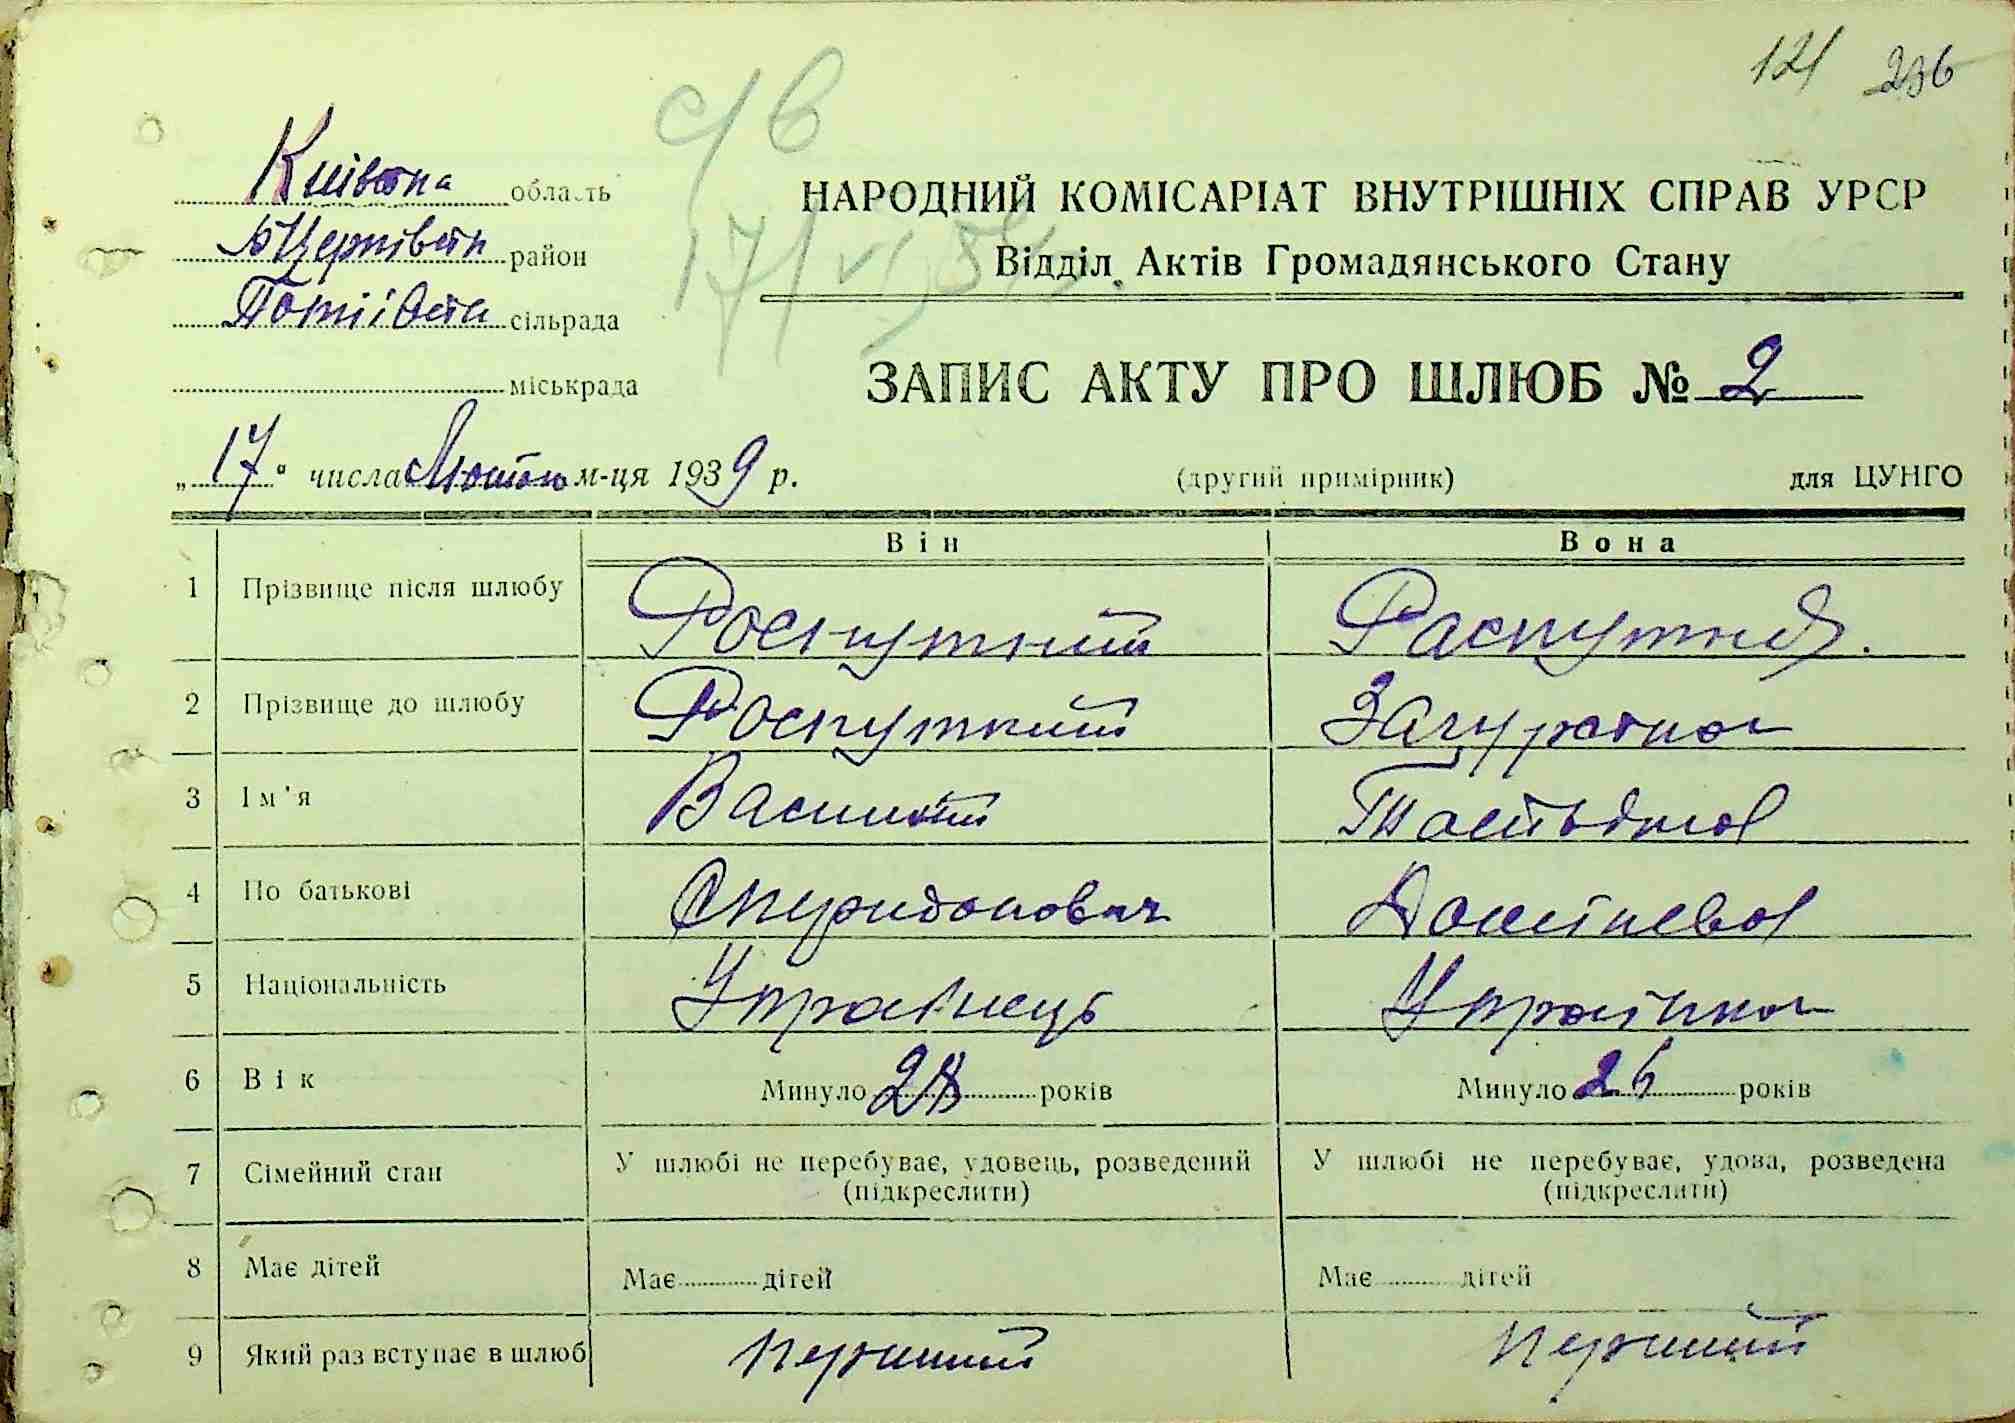 121 236
с/в
Київська область
Б Церківськ район
сільрада
міськрада
НАРОДНИЙ КОМІСАРІАТ ВНУТРІШНІХ СПРАВ УРСР
Відділ Актів Громадянського Стану
ЗАПИС АКТУ ПРО ШЛЮБ № 2
„17" числа Лютого м-ця 1939 р. (другий примірник) для ЦУНГО
Він Вона
1 Прізвище після шлюбу Роспутний Распутня.
2 Прізвище до шлюбу Роспутний
3 Ім'я Василій
4 По батькові Спиридонович
5 Національність Українець Українка
6 Вік Минуло 28 років Минуло 26 років
7 Сімейний стан У шлюбі не перебуває, удовець, розведений У шлюбі не перебуває, удова, розведена
(підкреслити) (підкреслити)
8 Має дітей Має дітей Має дітей
9 Який раз вступає в шлюб перший перший